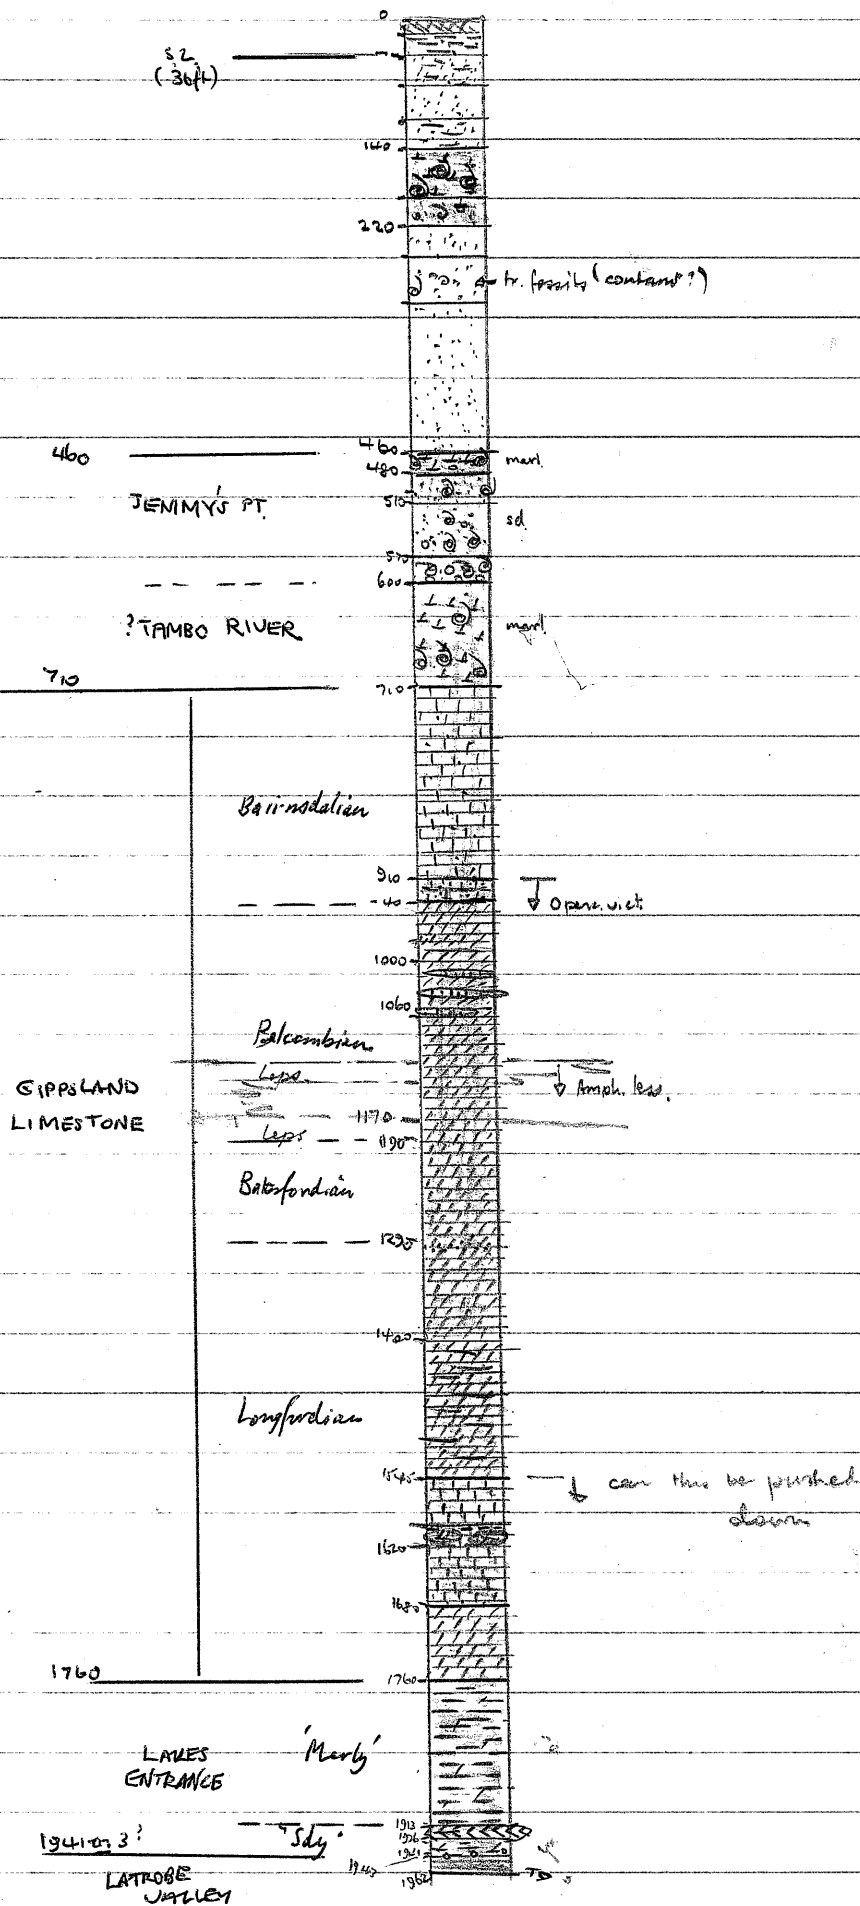 0
S2
(36ft)
140
220
tr. fossils (contam?)
460
460
marl
480
JEMMY'S PT.
510
sd
570
600
?TAMBO RIVER
marl
710
710
Bairnsdalian
910
40
Operc. vict.
1000
1060
Balcombian
Leps.
Amph. less.
GIPPSLAND
LIMESTONE
1170
Leps
1190
Batesfordian
1290
1400
Longfordian
1545
can this be pushed
down
1620
1680
1760
1760
LAKES
ENTRANCE
'Marly'
1913
"Sdy"
1926
1941 or 3?
1941
1943
LATROBE
VALLEY
1962
TD